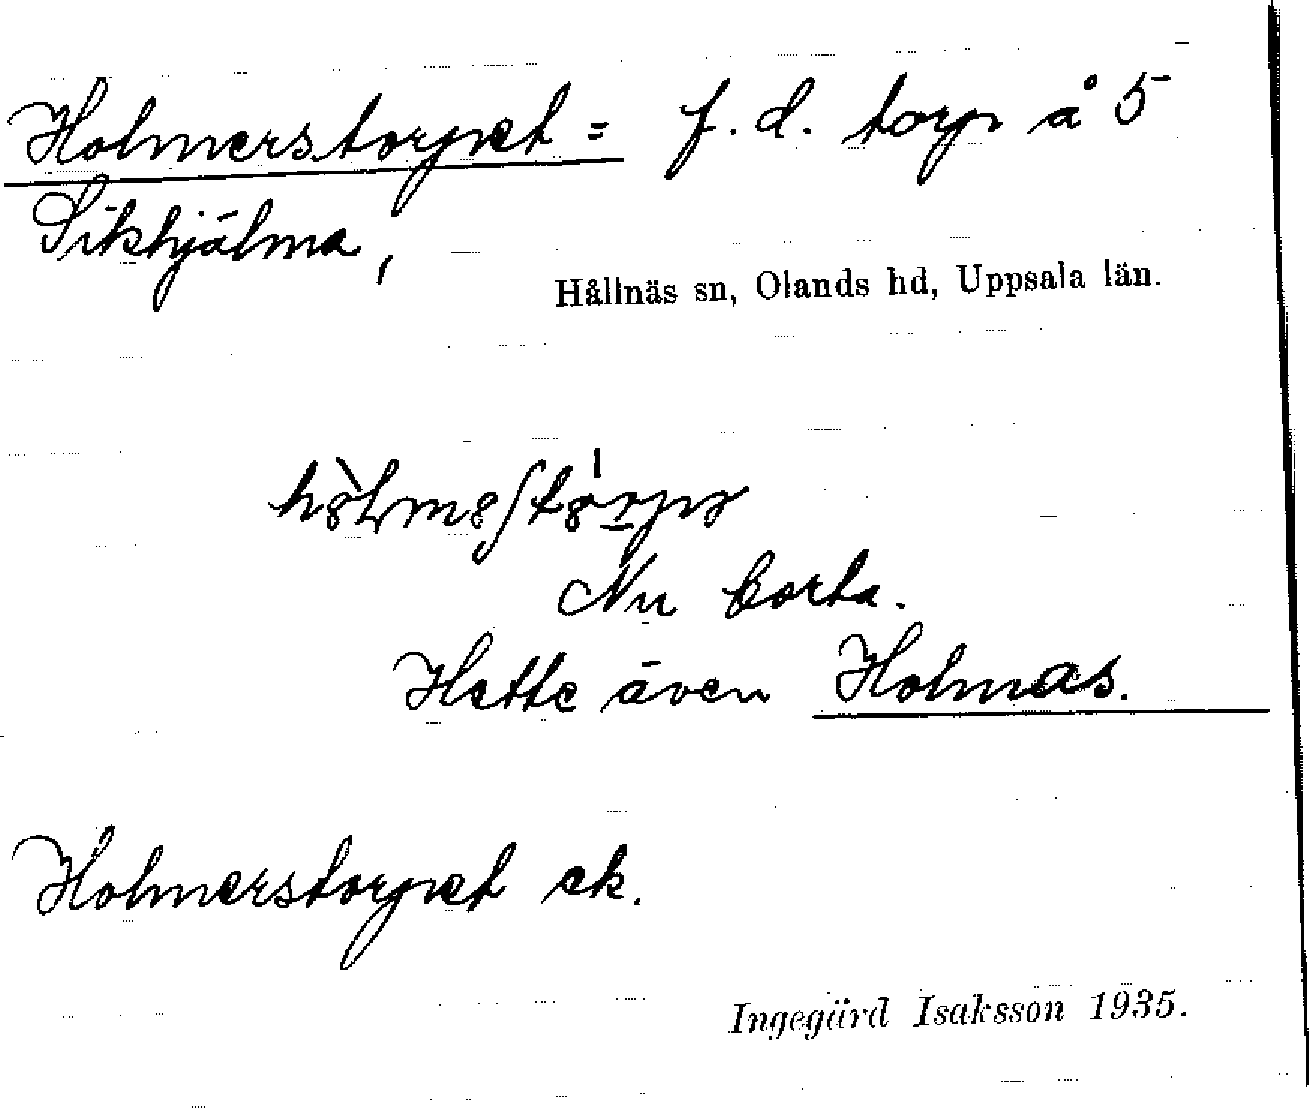 Holmerstorpet = f. d. torp å 5
Sikhjälma,
Hållnäs sn, Olands hd, Uppsala län.
Nu borta.
Hette även Holmas.
Holmerstorpet ek.
Ingegärd Isaksson 1935.